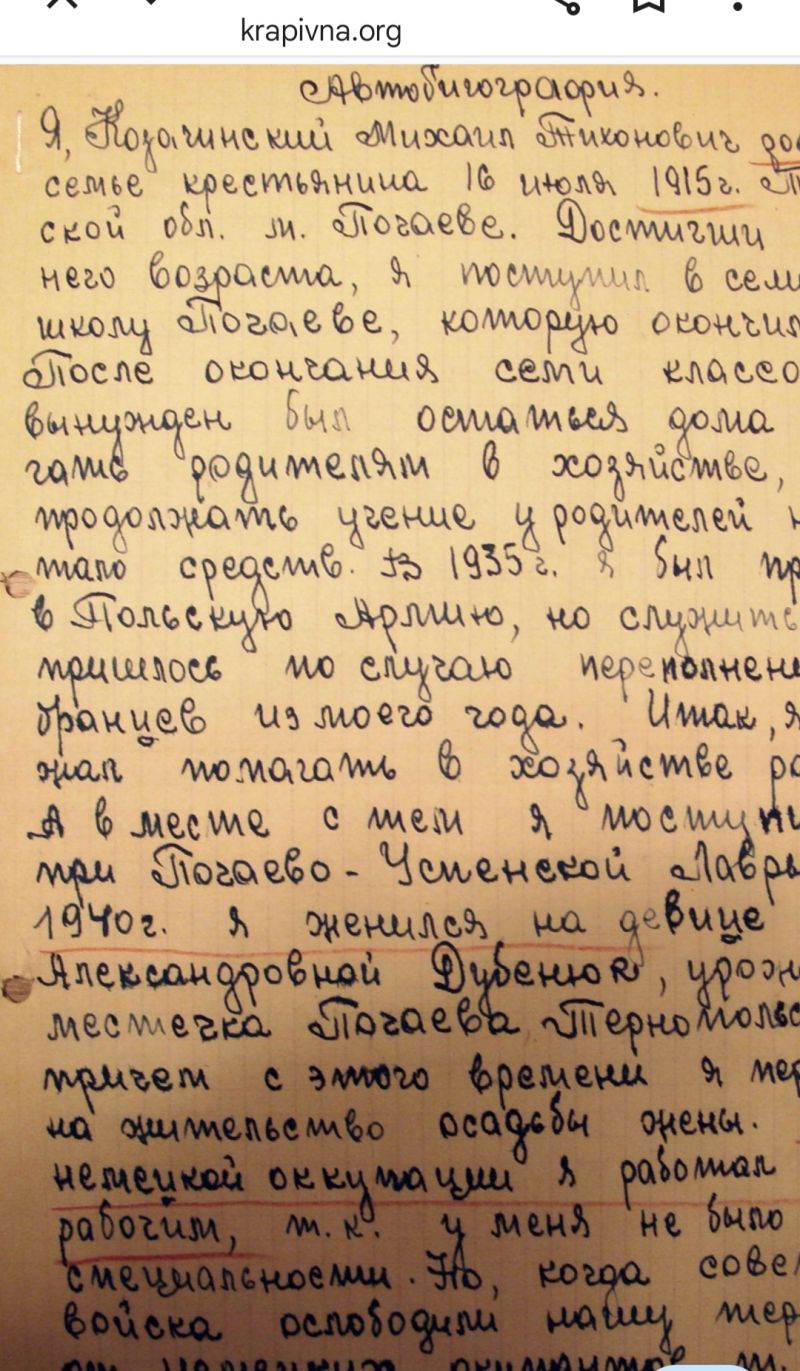 krapivna.org
Автобигография.
Я, Козачинский Михаил Тихонович
семье крестьянина 16 июля 1915г.
ской обл. м. Почаеве. Достигши
него возраста, я поступил в сем
школу Почаеве, которую окончил
После окончания семи классо
вынужден был остаться дома
гать родителям в хозяйстве,
продолжать учение у родителей н
тало средств. В 1935г. я был пр
в Польскую Армию, но служить
пришлось по случаю переполнен
бранцев из моего года. Итак, я
жал помагать в хозяйстве ро
А в месте с тем я поступи
при Почаево-Успенской Лавр
1940г. я женился на девице
Александровной Дубенюк, урож
местечка Почаева Тернопольс
причем с этого времени я пер
на жительство осадьбы жены.
немецкой оккупации я работал
рабочим, т.к. у меня не было
специальности. Но, когда сове
войска ослободили нашу тер